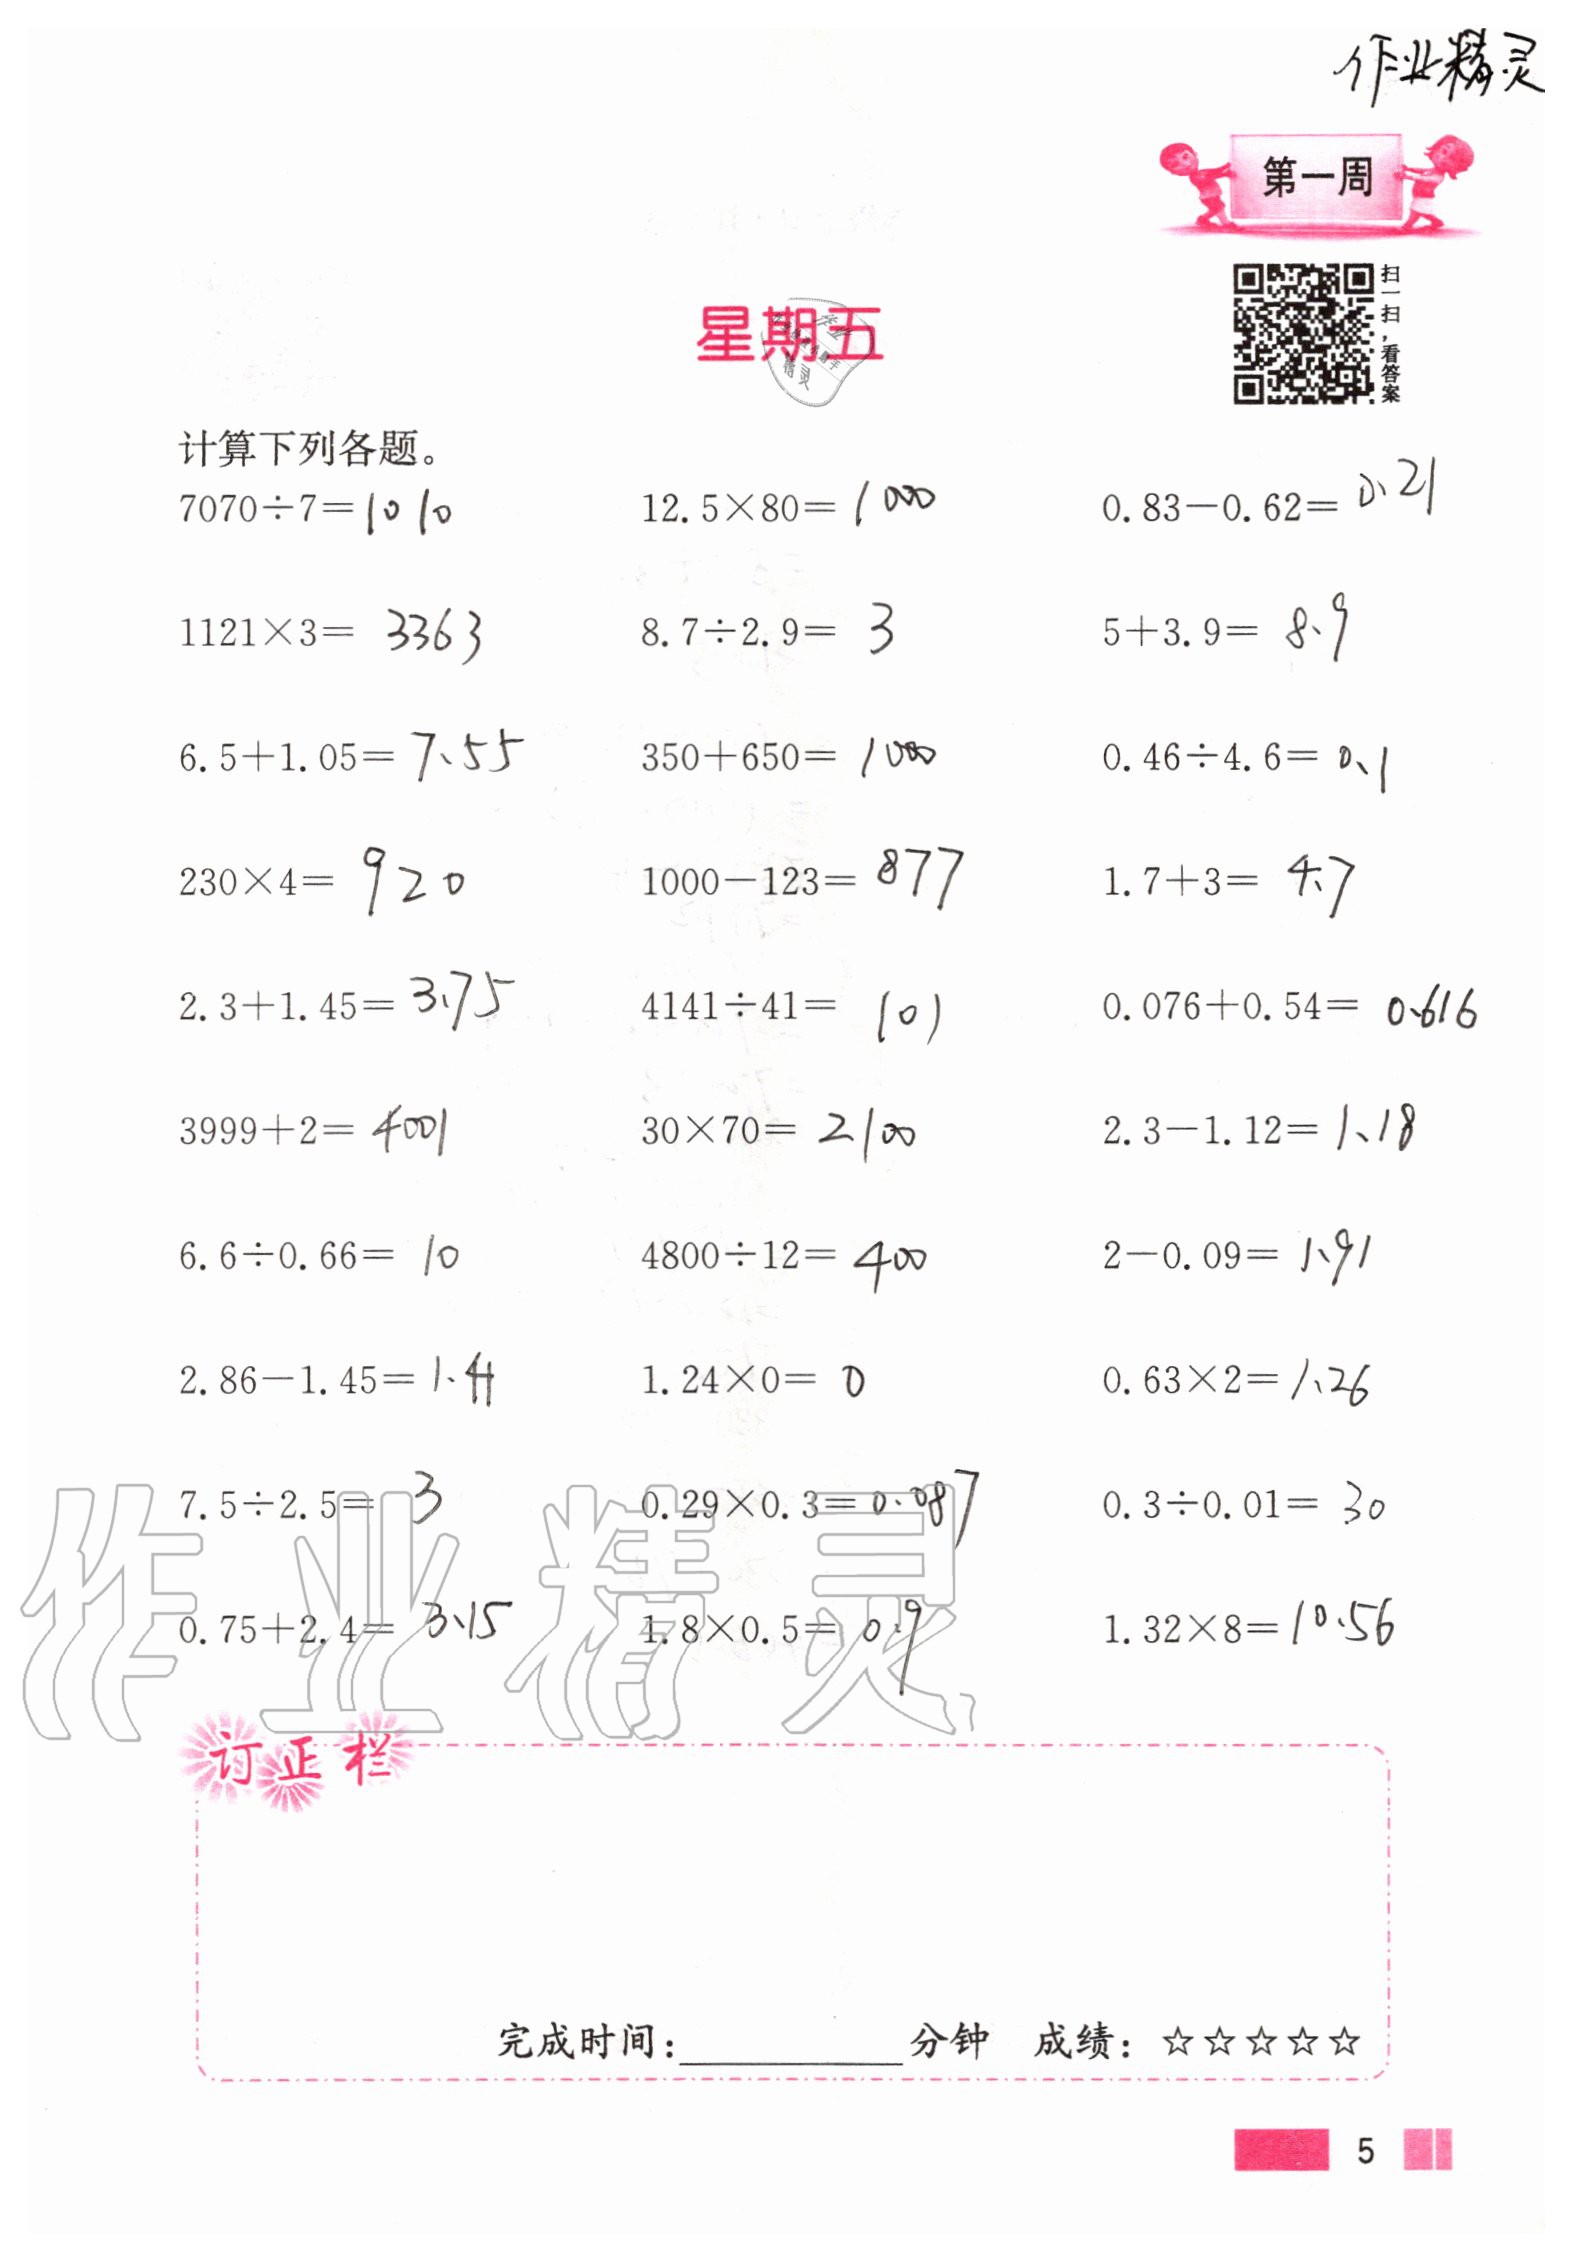 作业精灵
第一周
扫一扫，看答案
星期五
计算下列各题。
7070÷7=1010 12.5×80=1000 0.83-0.62=0.21
1121×3=3363 8.7÷2.9=3 5+3.9=8.9
6.5+1.05=7.55 350+650=1000 0.46÷4.6=0.1
230×4=920 1000-123=877 1.7+3=4.7
2.3+1.45=3.75 4141÷41=101 0.076+0.54=0.616
3999+2=4001 30×70=2100 2.3-1.12=1.18
6.6÷0.66=10 4800÷12=400 2-0.09=1.91
2.86-1.45=1.41 1.24×0=0 0.63×2=1.26
7.5÷2.5=3 0.29×0.3=0.087 0.3÷0.01=30
0.75+2.4=3.15 1.8×0.5=0.9 1.32×8=10.56
作业精灵
订正栏
完成时间：________分钟 成绩：☆☆☆☆☆
5